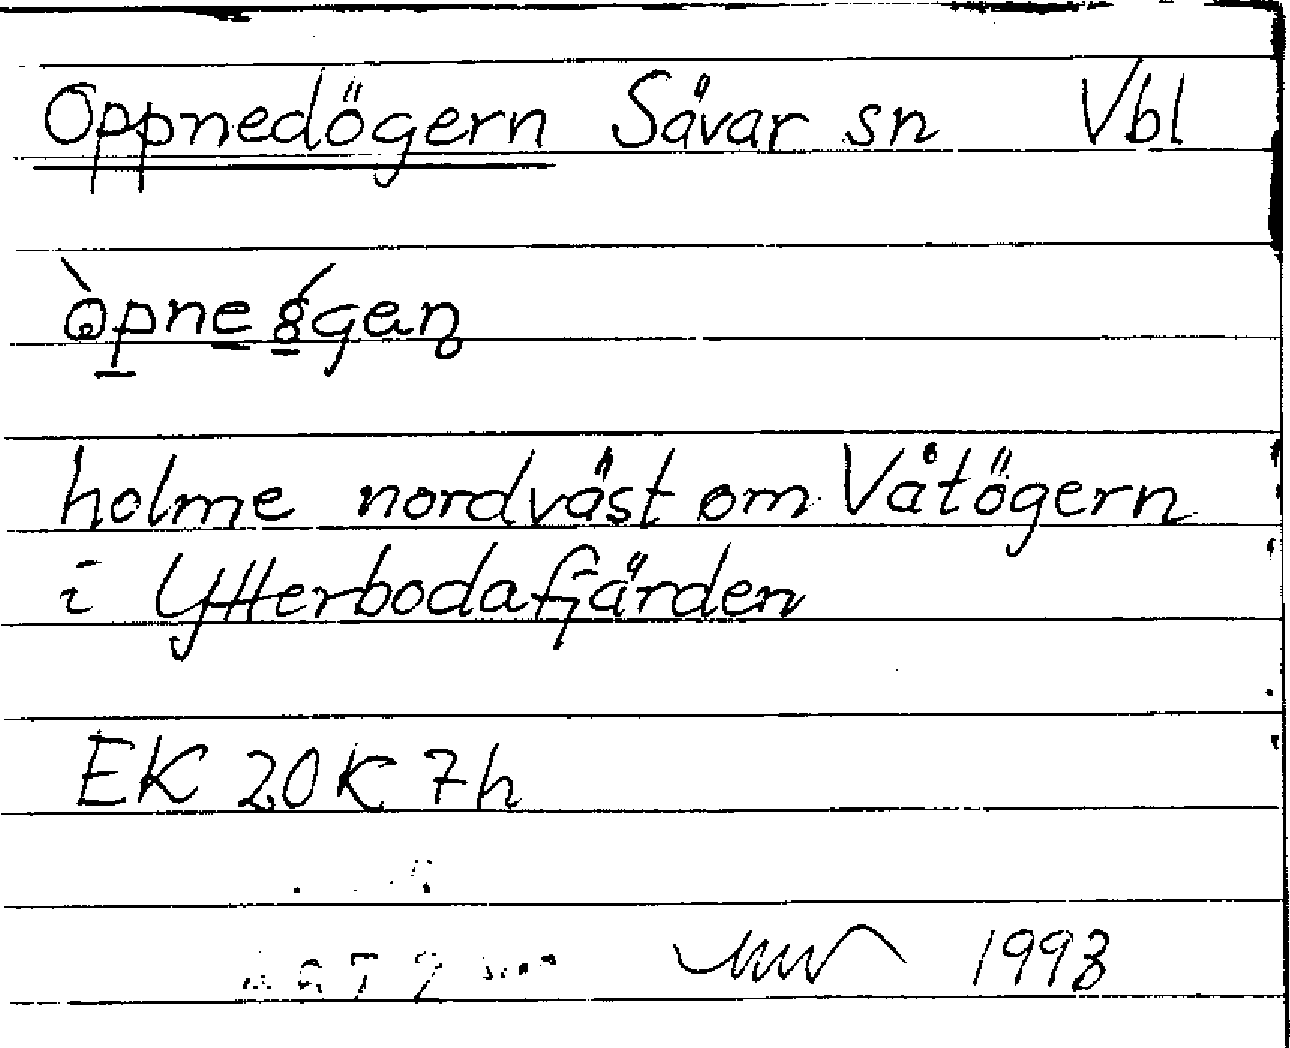 Oppnedögern Sävar sn Vbl
holme nordväst om Våtögern
i Ytterbodafjärden
EK 20K 7h
1993